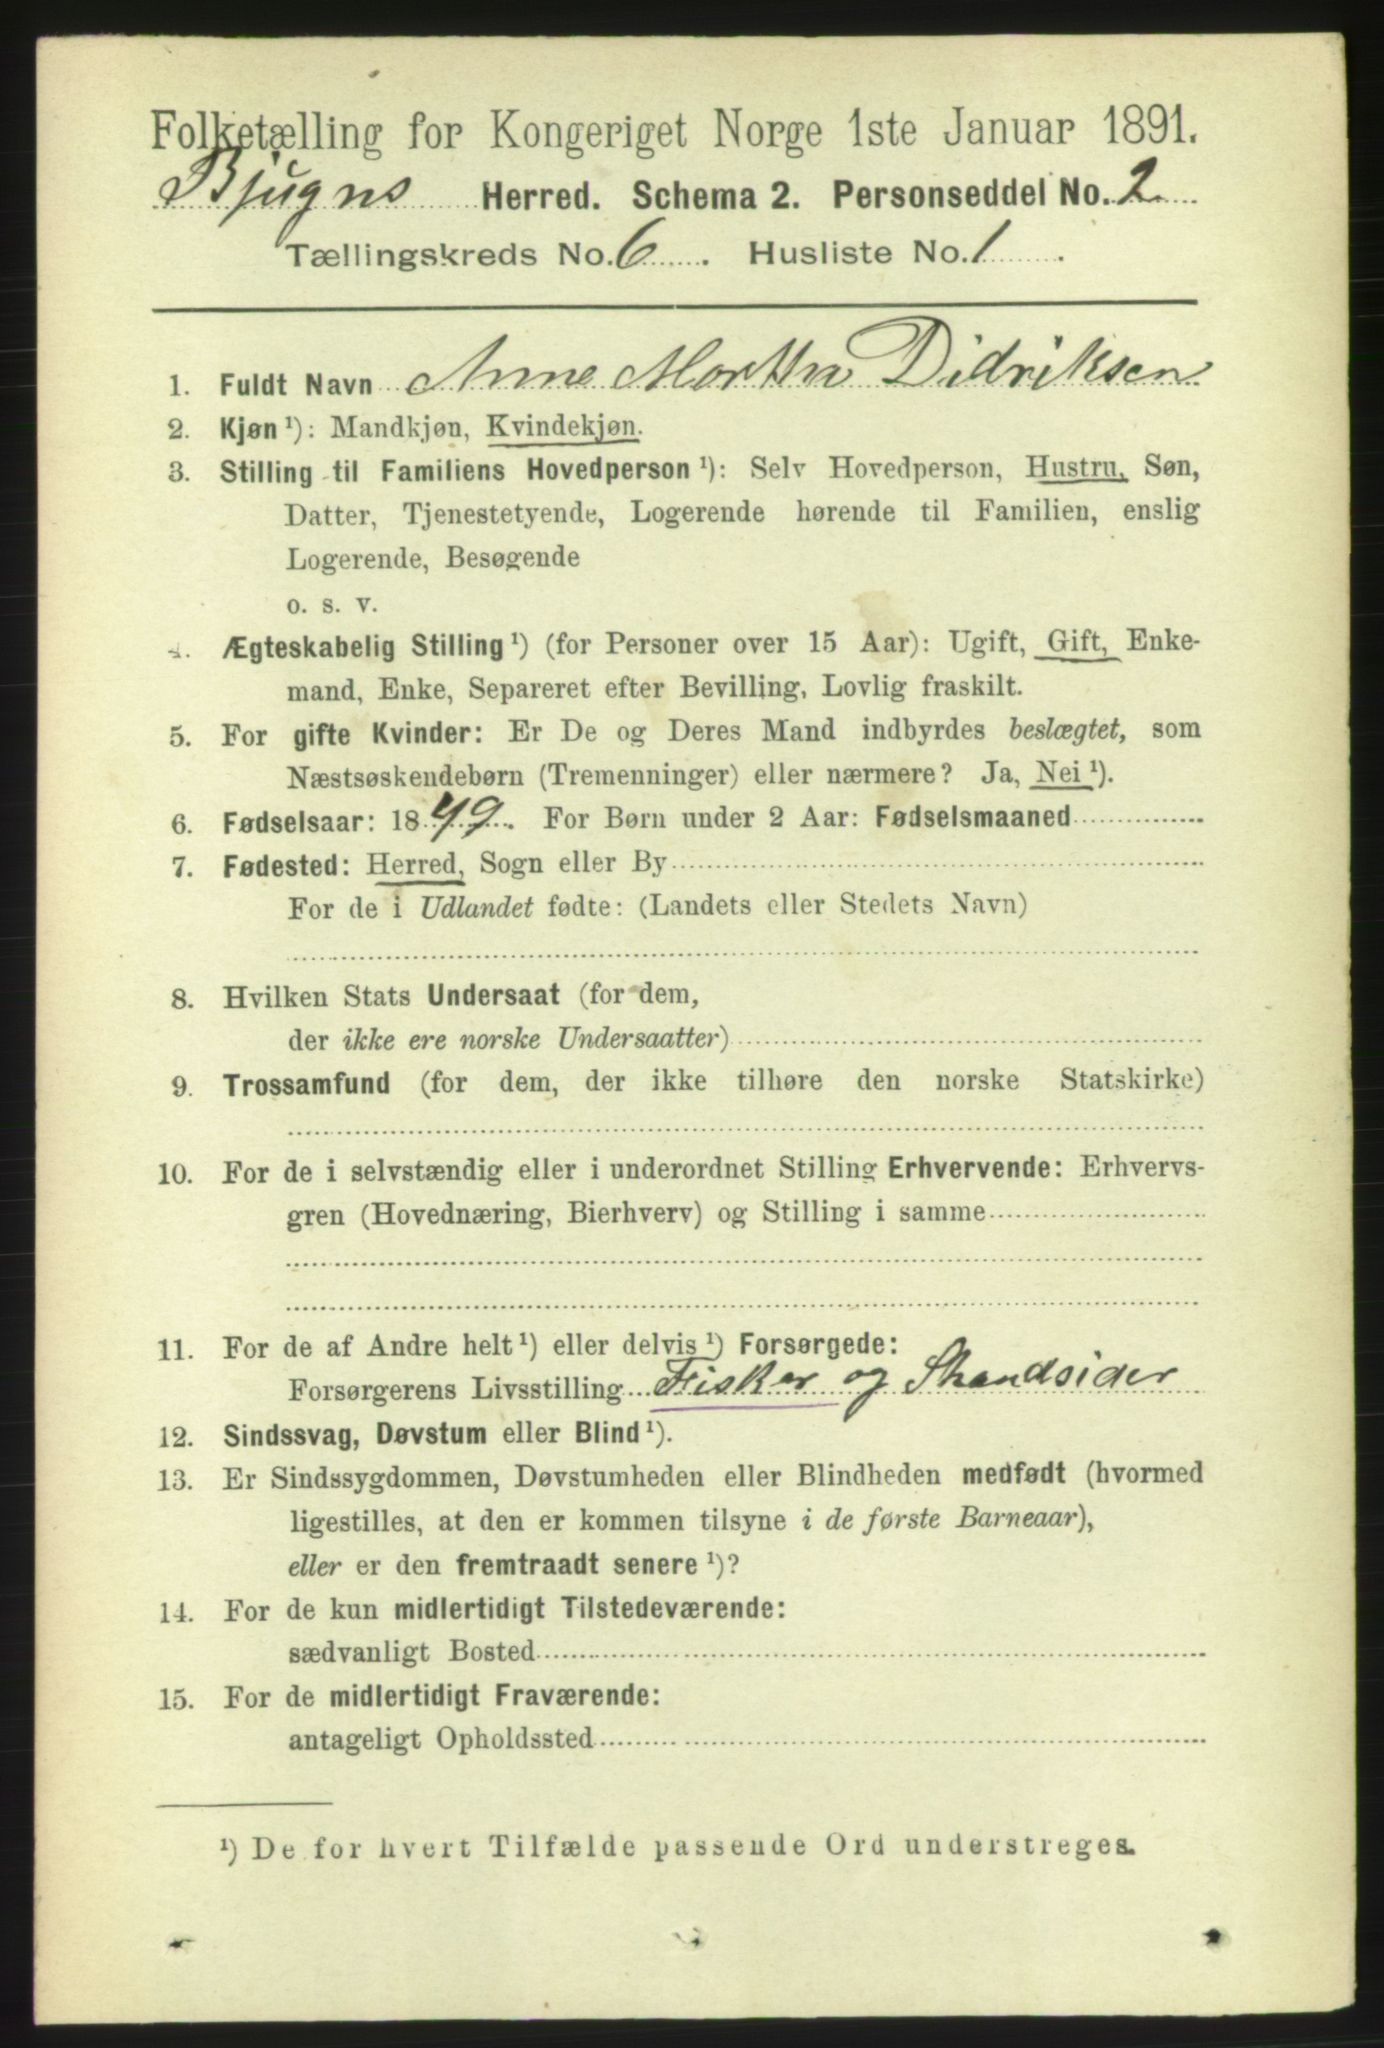 Folketælling for Kongeriget Norge 1ste Januar 1891.
Bjugns Herred. Schema 2. Personseddel No. 2
Tællingskreds No. 6. Husliste No. 1.
1. Fuldt Navn Anne Martha Didriksen
2. Kjøn ¹): Mandkjøn, Kvindekjøn.
3. Stilling til Familiens Hovedperson ¹): Selv Hovedperson, Hustru, Søn,
Datter, Tjenestetyende, Logerende hørende til Familien, enslig
Logerende, Besøgende
o. s. v.
4. Ægteskabelig Stilling ¹) (for Personer over 15 Aar): Ugift, Gift, Enke-
mand, Enke, Separeret efter Bevilling, Lovlig fraskilt.
5. For gifte Kvinder: Er De og Deres Mand indbyrdes beslægtet, som
Næstsøskendebørn (Tremenninger) eller nærmere? Ja, Nei ¹).
6. Fødselsaar: 1849. For Børn under 2 Aar: Fødselsmaaned
7. Fødested: Herred, Sogn eller By
For de i Udlandet fødte: (Landets eller Stedets Navn)
8. Hvilken Stats Undersaat (for dem,
der ikke ere norske Undersaatter)
9. Trossamfund (for dem, der ikke tilhøre den norske Statskirke)
10. For de i selvstændig eller i underordnet Stilling Erhvervende: Erhvervs-
gren (Hovednæring, Bierhverv) og Stilling i samme
11. For de af Andre helt ¹) eller delvis ¹) Forsørgede:
Forsørgerens Livsstilling Fisker og Strandsider
12. Sindssvag, Døvstum eller Blind ¹).
13. Er Sindssygdommen, Døvstumheden eller Blindheden medfødt (hvormed
ligestilles, at den er kommen tilsyne i de første Barneaar),
eller er den fremtraadt senere ¹)?
14. For de kun midlertidigt Tilstedeværende:
sædvanligt Bosted
15. For de midlertidigt Fraværende:
antageligt Opholdssted
¹) De for hvert Tilfælde passende Ord understreges.